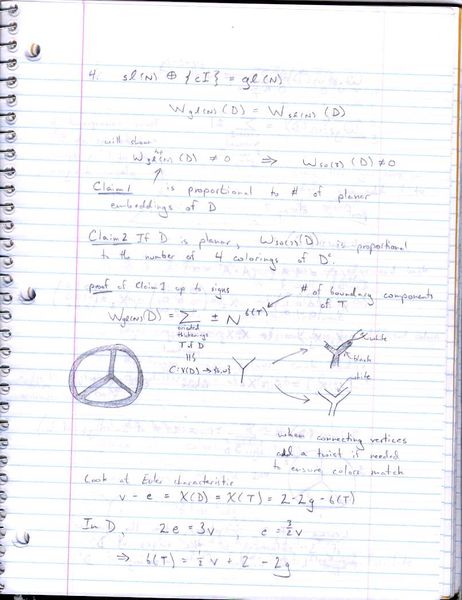 4. sl(N) ⊕ {cI} = gl(N)
W_gl(N) (D) = W_sl(N) (D)
will show
W^top_gl(N) (D) ≠ 0 ⇒ W_sl(2) (D) ≠ 0
Claim 1 is proportional to # of planar
embeddings of D
Claim 2 If D is planar, W_sl(2)(D) is proportional
to the number of 4 colorings of D^c.
proof of Claim 1 up to signs
# of boundary components
of T
W_gl(N)(D) = Σ ± N^b(T)
oriented
thickenings
T of D
white
black
white
when connecting vertices
add a twist if needed
to ensure colors match
Look at Euler characteristic
v - e = χ(D) = χ(T) = 2 - 2g - b(T)
In D, 2e = 3v, e = 3/2 v
⇒ b(T) = 1/2 v + 2 - 2g